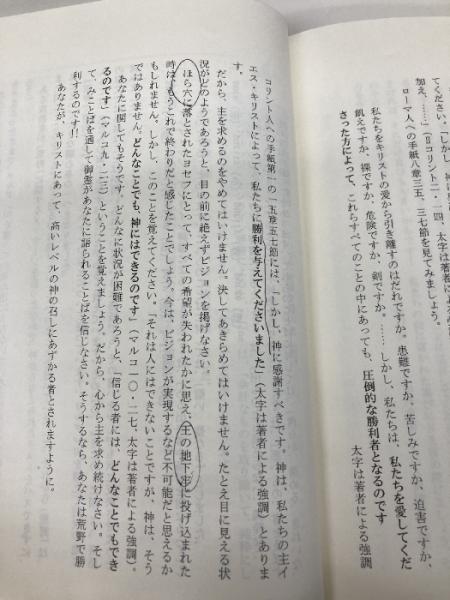 てください。「しかし、神に
加え、……」(Ⅱコリント二・一四、太字は著者によ
ローマ人への手紙八章三五、三七節を見てみましょう。
私たちをキリストの愛から引き離すのはだれですか。患難ですか、苦しみですか、迫害ですか、
飢えですか、裸ですか、危険ですか、剣ですか。……しかし、私たちは、私たちを愛してくだ
さった方によって、これらすべてのことの中にあっても、圧倒的な勝利者となるのです
太字は著者による強調
コリント人への手紙第一の一五章五七節には、「しかし、神に感謝すべきです。神は、私たちの主イ
エス・キリストによって、私たちに勝利を与えてくださいました」(太字は著者による強調)とありま
す。
だから、主を求めるのをやめてはいけません。決してあきらめてはいけません。たとえ目に見える状
況がどのようであろうと、目の前に絶えずビジョンを掲げなさい。
ほら穴に落とされたヨセフにとって、すべての希望が失われたかに思え、王の地下牢に投げ込まれた
時は、もうこれで終わりだと感じたことでしょう。今は、ビジョンが実現するなど不可能だと思えるか
もしれません。しかし、このことを覚えてください。「それは人にはできないことですが、神は、そう
ではありません。どんなことでも、神にはできるのです」(マルコ一〇・二七、太字は著者による強調)。
あなたに関してもそうです。どんなに状況が困難であろうと、「信じる者には、どんなことでもでき
るのです」(マルコ九・二三)ということを覚えましょう。だから、心から主を求め続けなさい。そし
て、みことばを通して御霊があなたに語られることばを信じなさい。そうするなら、あなたは荒野で勝
利するのです!!
あなたが、キリストにあって、高いレベルの神の召しにあずかる者とされますように。